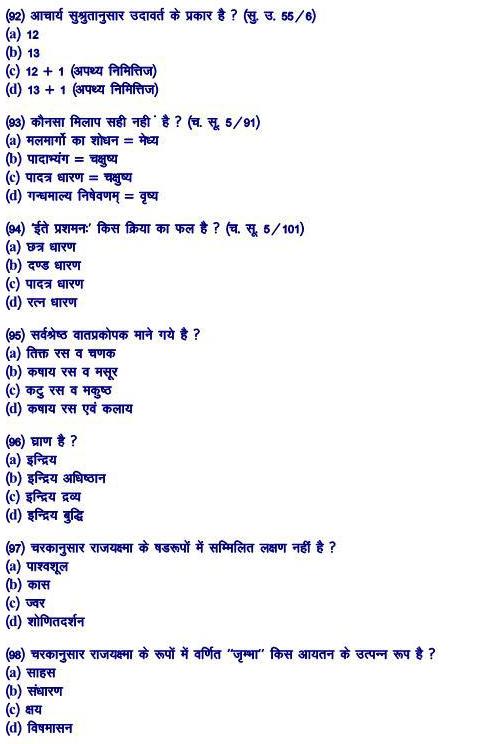 (92) आचार्य सुश्रुतानुसार उदावर्त के प्रकार है ? (सु. उ. 55/6)
(a) 12
(b) 13
(c) 12 + 1 (अपथ्य निमित्तिज)
(d) 13 + 1 (अपथ्य निमित्तिज)
(93) कौनसा मिलाप सही नही ं है ? (च. सू. 5/91)
(a) मलमार्गो का शोधन = मेध्य
(b) पादाभ्यंग = चक्षुष्य
(c) पादत्र धारण = चक्षुष्य
(d) गन्धमाल्य निषेवणम् = वृष्य
(94) 'ईते प्रशमनः' किस क्रिया का फल है ? (च. सू. 5/101)
(a) छत्र धारण
(b) दण्ड धारण
(c) पादत्र धारण
(d) रत्न धारण
(95) सर्वश्रेष्ठ वातप्रकोपक माने गये है ?
(a) तिक्त रस व चणक
(b) कषाय रस व मसूर
(c) कटु रस व मकुष्ठ
(d) कषाय रस एवं कलाय
(96) घ्राण है ?
(a) इन्द्रिय
(b) इन्द्रिय अधिष्ठान
(c) इन्द्रिय द्रव्य
(d) इन्द्रिय बुद्धि
(97) चरकानुसार राजयक्ष्मा के षडरूपों में सम्मिलित लक्षण नहीं है ?
(a) पाश्वशूल
(b) कास
(c) ज्वर
(d) शोणितदर्शन
(98) चरकानुसार राजयक्ष्मा के रूपों में वर्णित "जृम्भा" किस आयतन के उत्पन्न रूप है ?
(a) साहस
(b) संधारण
(c) क्षय
(d) विषमासन